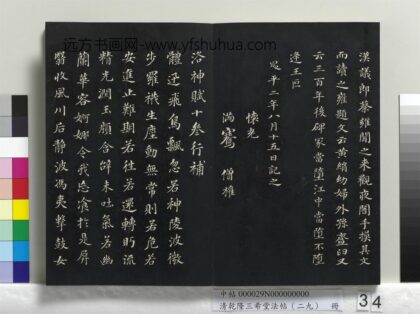 远方书画网-www.yfshuhua.com
漢議郎蔡雍聞之來觀夜闇手摸其文
而讀之雍題文云黃絹幼婦外孫齏臼又
云三百年後碑冢當墮江中當墮不墮
逢王叵
升平二年八月十五日記之
懷充
滿騫 僧權
洛神賦十叁行補
體迅飛鳧飄忽若神陵波微
步羅襪生塵動無常則若危若
安進止難期若往若還轉眄流
精光潤玉顏含辭未吐氣若幽
蘭華容婀娜令我忘飡於是屏
翳收風川后靜波馮夷擊鼓女
中帖 000029N000000000
清乾隆三希堂法帖(二九) 冊
34